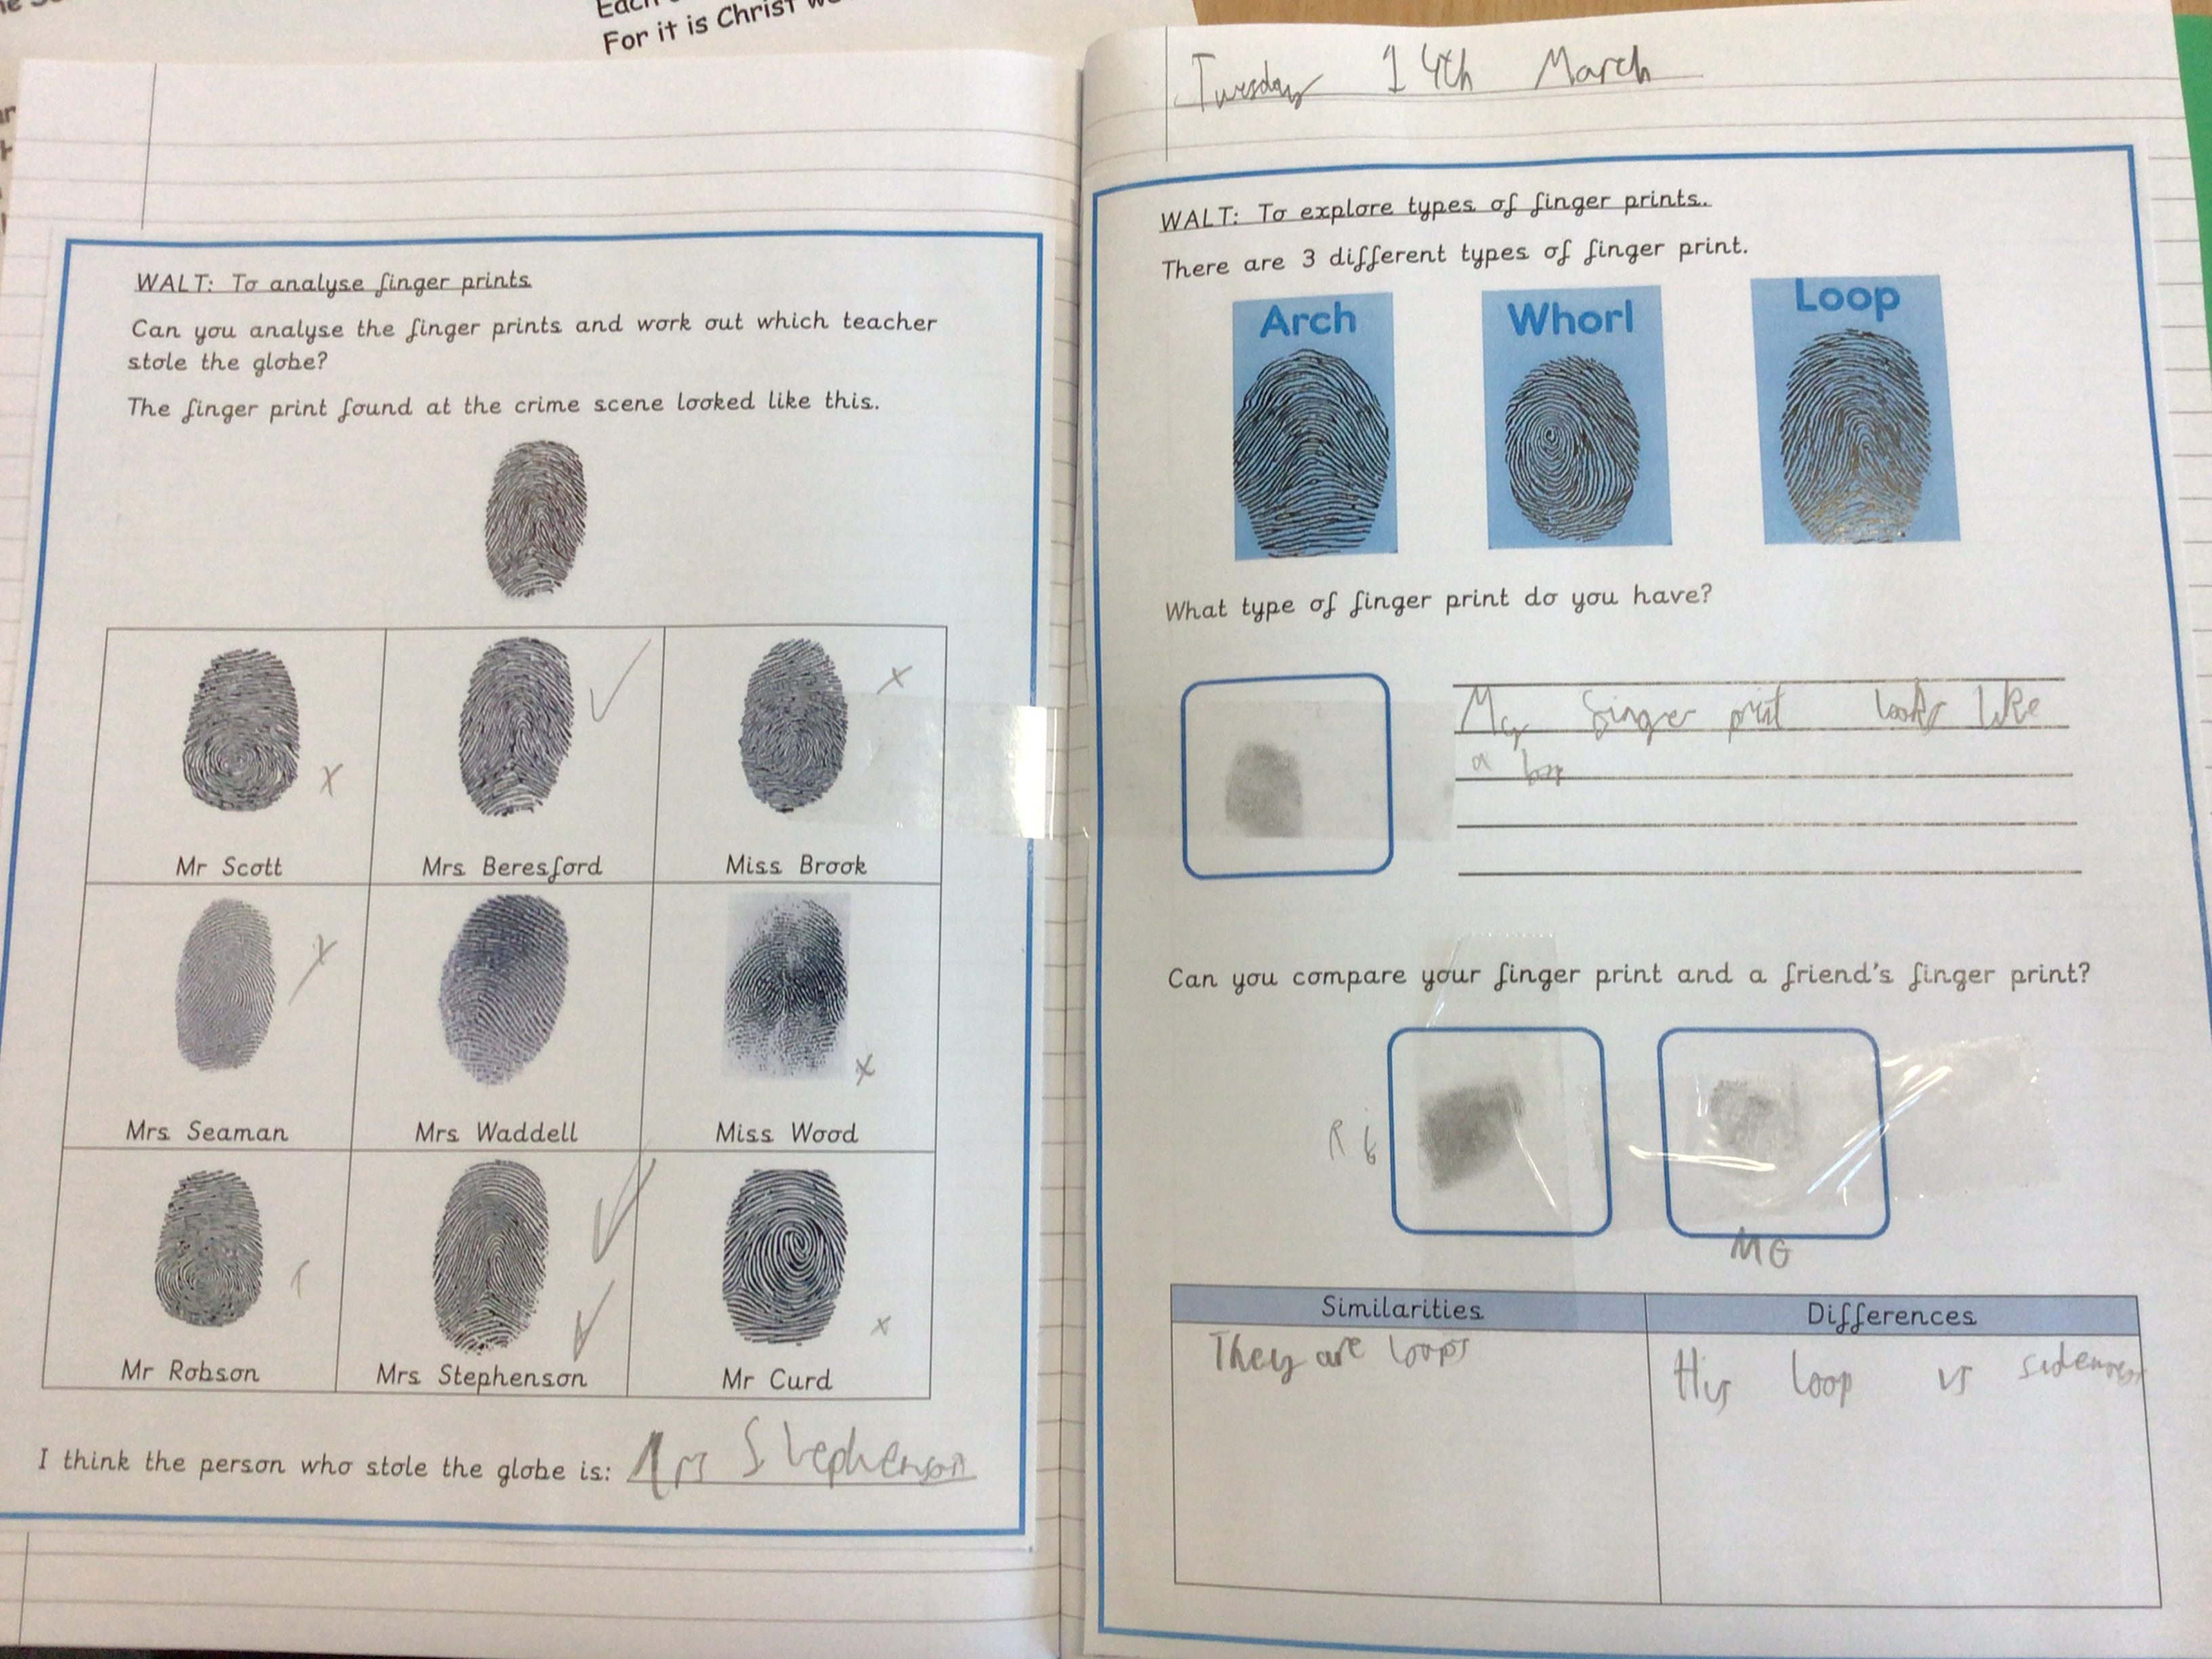 For it is Christ
WALT: To analyse finger prints
Can you analyse the finger prints and work out which teacher
stole the globe?
The finger print found at the crime scene looked like this.
Mr Scott
Mrs Beresford
Miss Brook
Mrs Seaman
Mrs Waddell
Miss Wood
Mr Robson
Mrs Stephenson
Mr Curd
I think the person who stole the globe is: Mrs Stephenson
Tuesday 14th March
WALT: To explore types of finger prints.
There are 3 different types of finger print.
Arch
Whorl
Loop
What type of finger print do you have?
My finger print looks like
a loop
Can you compare your finger print and a friend's finger print?
MG
Similarities
Differences
They are loops
His loop is